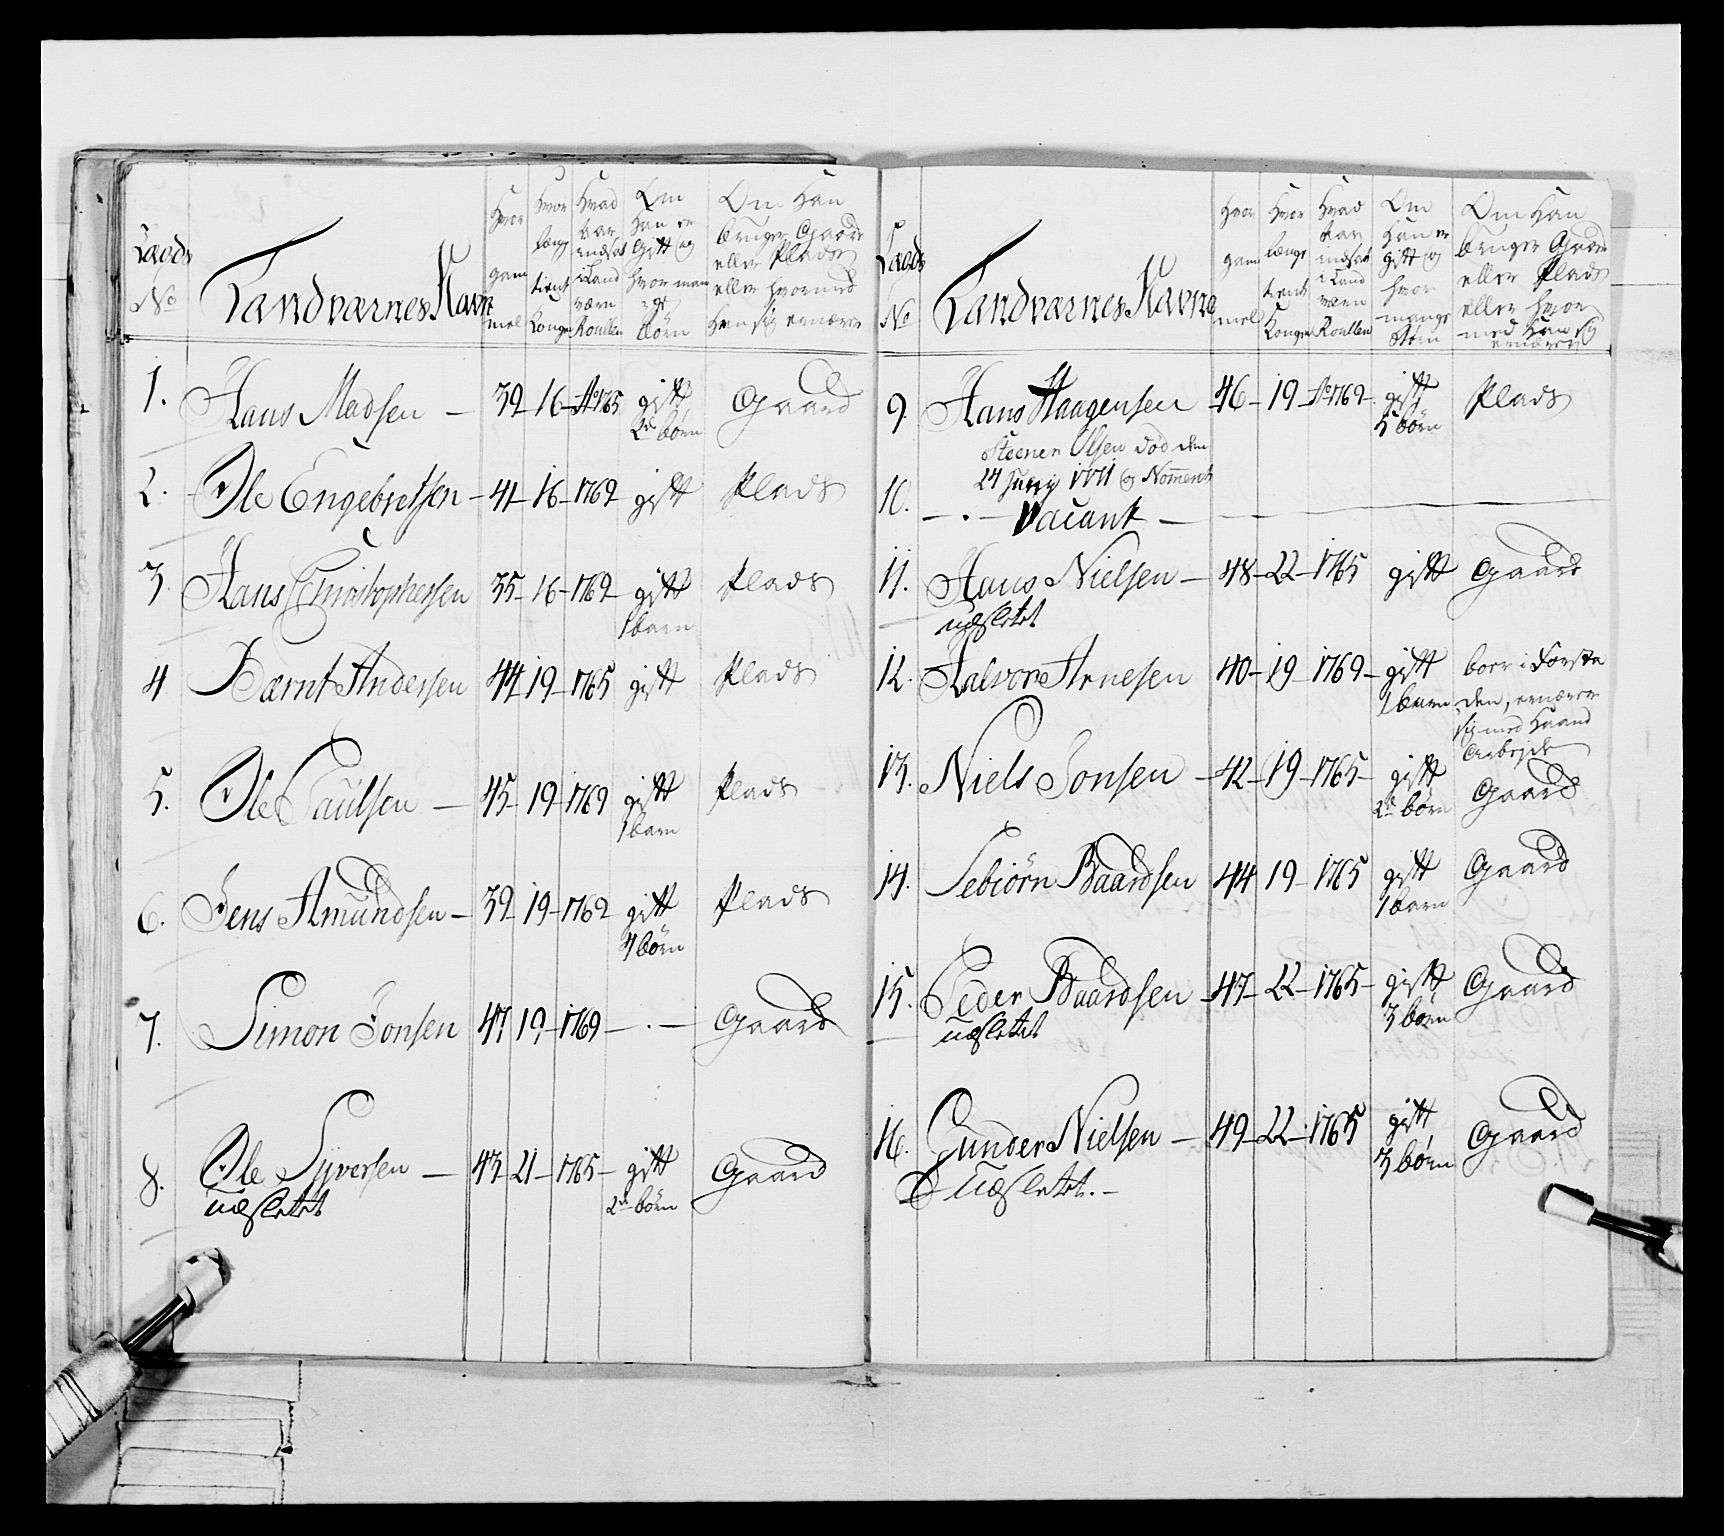 Laods No
Landværnes Navne
Hvor gammel
Hvor længe tient Kongen
Hvad Aar indsat i Land værn Roullen
Om Han er Gift og hvor mange Börn
Om Han bruger Gaard eller Plads eller hvormed Han sig ernærer
1. Hans Madsen – 39 – 16 – Ao 1765 gift 2de börn Gaard
2. Ole Engebretsen – 41 – 16 – 1769 gift Plads
3. Hans Christophersen 35 – 16 – 1769 – gift 1 barn Plads
4 Bærnt Andersen 44 – 19 – 1765 gift Plads
5. Ole Paulsen – 45 – 19 – 1769 gift 1 barn Plads
6. Jens Amundsen – 39 – 19 – 1769 gift 4 börn Plads
7. Simon Jonsen 47 19 – 1769 – . – Gaard
8. Ole Syversen – 43 – 21 – 1765 – gift 2de börn Gaard
udsletet
Laods No
Landværnes Navne
Hvor gammel
Hvor længe tient Kongen
Hvad Aar indsat i Land værn Roullen
Om Han er gift og hvor mange Börn
Om Han bruger Gaard eller Plads eller hvor med Han sig ernærer
9. Hans Haagensen 46 – 19 – Ao 1769 – gift 5 börn Plads
Steener Olsen död den
24 Juny 1771 og Noment
10. – . – Vacant –
11. Hans Nielsen – 48 – 22 – 1765 gift Gaard
udsletet
12. Halvor Arnesen 40 – 19 1769 – gift 1 barn boer i Forsta
den, ernærer
sig med Haand
Arbejde
13. Niels Jonsen – 42 – 19 – 1765 – gift 2de börn Gaard
14. Sebiörn Baardsen 44 19 – 1765 gift 1 barn Gaard
15. Peder Baardsen – 47 – 22 – 1765 – gift 3 börn Gaard
udsletet
16. Gunder Nielsen – 49 – 22 – 1765 gift 3 börn Gaard
udsletet. –